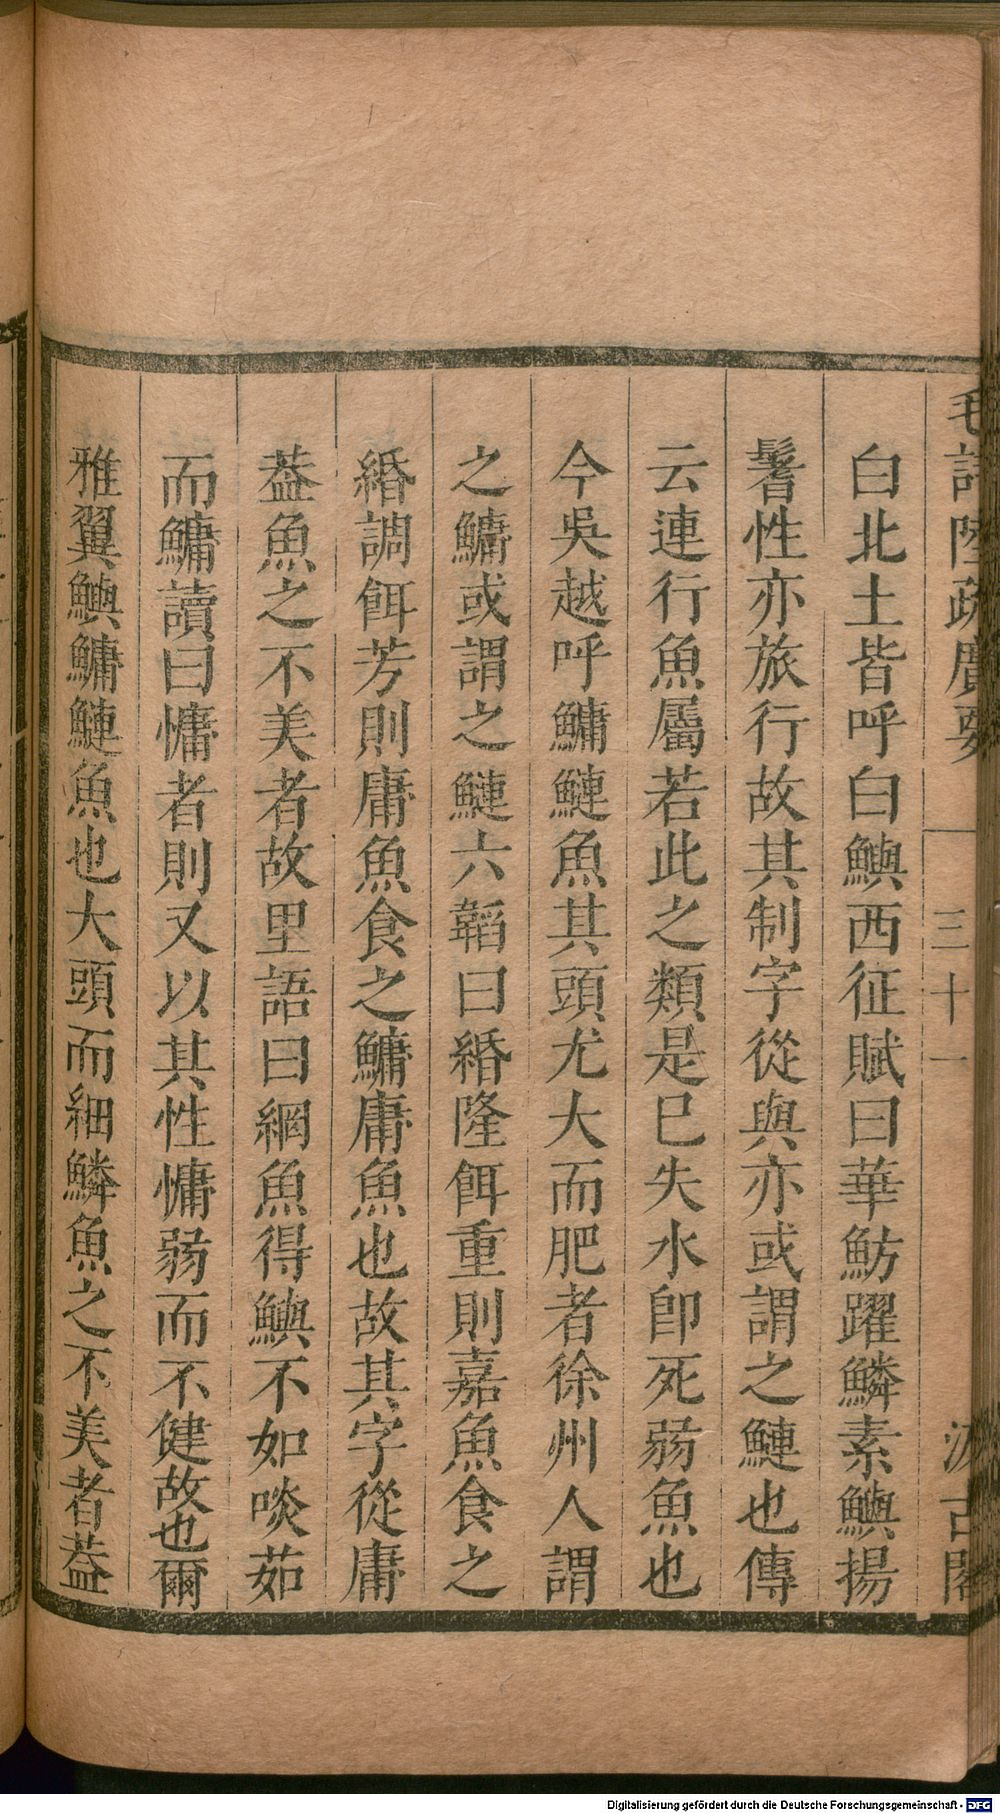 毛詩陸疏廣要 三十一 汲古閣
白北土皆呼白鱮西征賦曰華魴躍鱗素鱮揚
鬐性亦旅行故其制字從與亦或謂之鰱也傳
云連行魚屬若此之類是巳失水卽死弱魚也
今吳越呼鱅鰱魚其頭尤大而肥者徐州人謂
之鱅或謂之鰱六韜曰緡隆餌重則嘉魚食之
緡調餌芳則庸魚食之鱅庸魚也故其字從庸
葢魚之不美者故里語曰網魚得鱮不如啖茹
而鱅讀曰慵者則又以其性慵弱而不健故也爾
雅翼鱮鱅鰱魚也大頭而細鱗魚之不美者葢
Digitalisierung gefördert durch die Deutsche Forschungsgemeinschaft - DFG